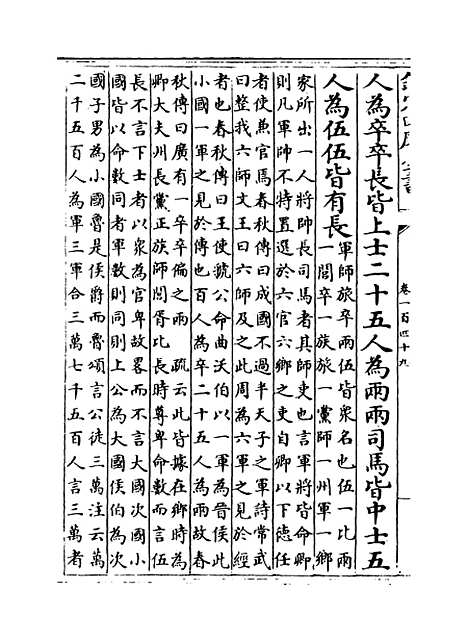 欽定四庫全書
卷一百四十九
人為卒卒長皆上士二十五人為兩兩司馬皆中士五
人為伍伍皆有長
軍師旅卒兩伍皆衆名也伍一比兩
一閭卒一族旅一黨師一州軍一鄉
家所出一人將帥長司馬者其師吏也言軍將皆命卿
則凡軍帥不特置選於六官六鄉之吏自卿以下徳任
者使兼官焉春秋傳曰成國不過半天子之軍詩常武
曰整我六師文王曰六師及之此周為六軍之見於經
者也春秋傳曰王使虢公命曲沃伯以一軍為晉侯此
小國一軍之見於傳也百人為卒二十五人為兩故春
秋傳曰廣有一卒卒偏之兩　疏云此皆據在鄉時為
卿大夫州長黨正族師閭胥比長時尊卑命數而言伍
長不言下士者以衆為官卑故畧而不言大國次國小
國皆以命數同者軍數則同則上公為大國侯伯為次
國子男為小國魯是侯爵而魯頌言公徒三萬注云萬
二千五百人為軍三軍合三萬七千五百人言三萬者